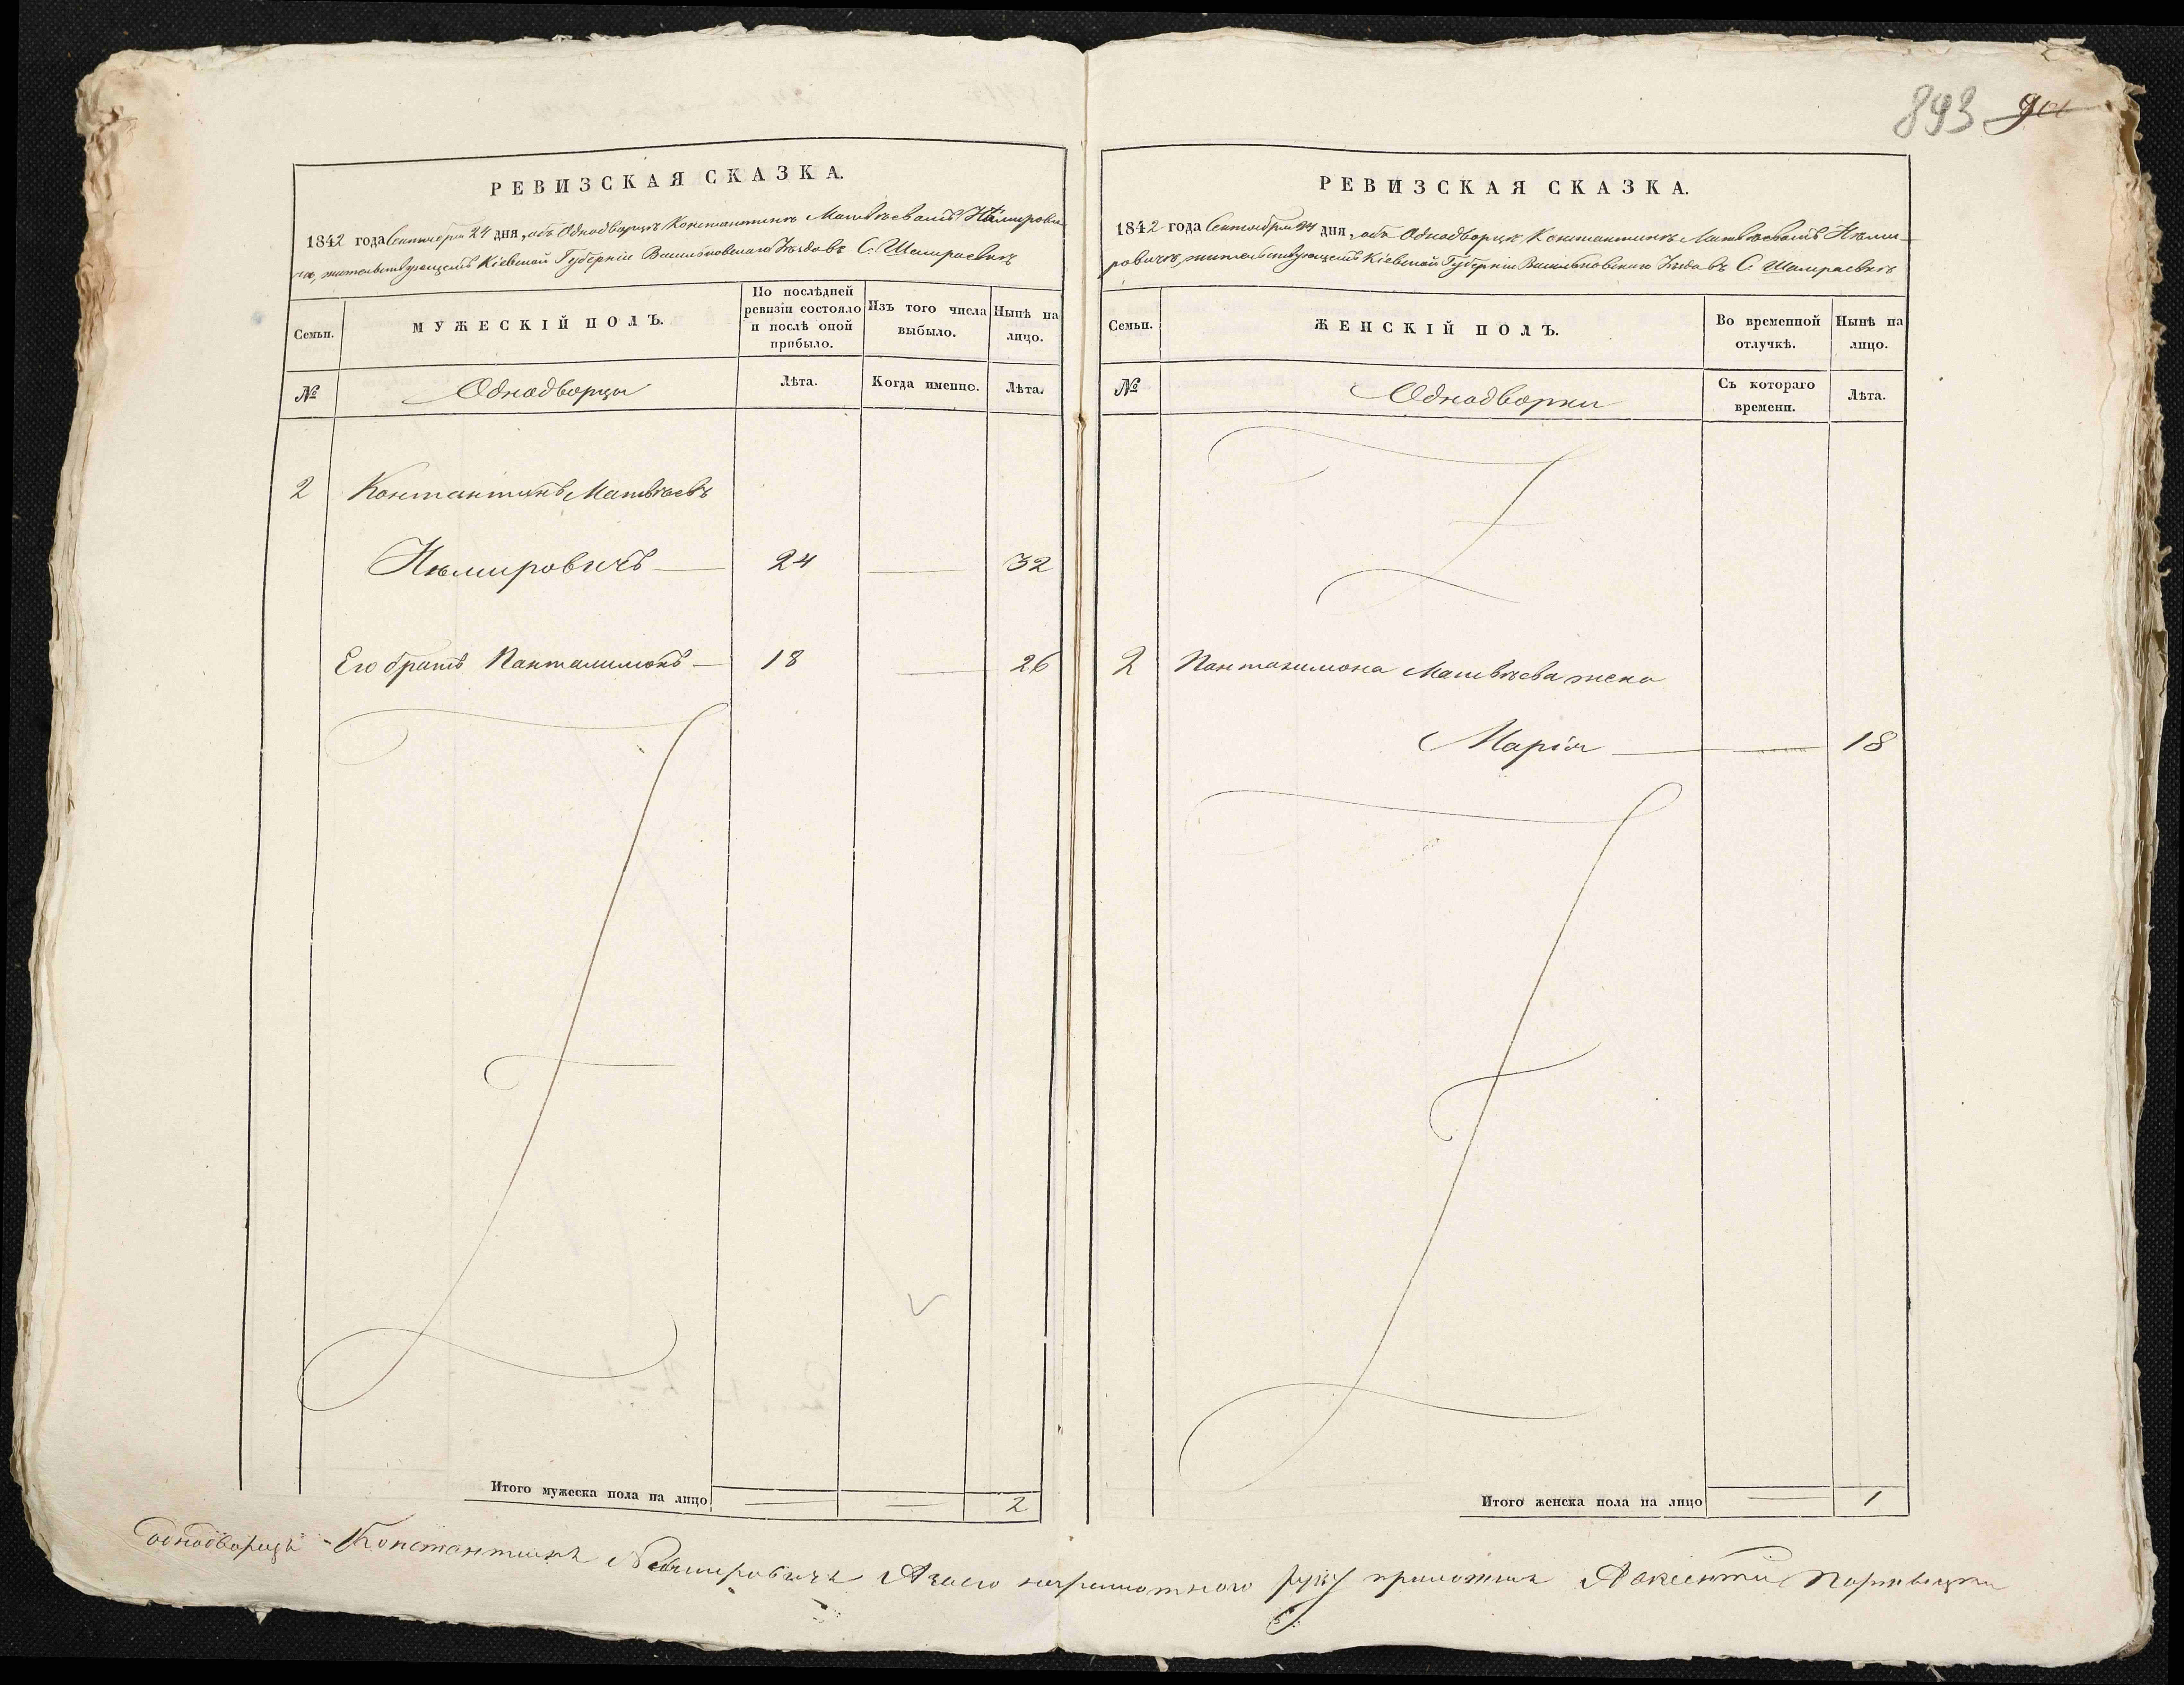 893 901
РЕВИЗСКАЯ СКАЗКА.
1842 года Сентября 24 дня, объ Однодворцѣ Константинѣ Матвѣевѣ Нѣмирови-
чѣ, жительствующемъ Кіевской Губерніи Васильковскаго Уѣзда въ С. Шамраевкѣ
Семьи.
МУЖЕСКІЙ ПОЛЪ.
По послѣдней ревизіи состояло и послѣ оной прибыло.
Изъ того числа выбыло.
Нынѣ на лицо.
№
Однодворцы
Лѣта.
Когда именно.
Лѣта.
2 Константинъ Матвѣевъ
Нѣмировичъ — 24 — 32
Его братъ Панталимонъ — 18 — 26
Итого мужеска пола на лицо 2
РЕВИЗСКАЯ СКАЗКА.
1842 года Сентября 24 дня, объ Однодворцѣ Константинѣ Матвѣевѣ Нѣми-
ровичѣ, жительствующемъ Кіевской Губерніи Васильковскаго Уѣзда въ С. Шамраевкѣ
Семьи.
ЖЕНСКІЙ ПОЛЪ.
Во временной отлучкѣ.
Нынѣ на лицо.
№
Однодворки
Съ котораго времени.
Лѣта.
2 Панталимона Матвѣева жена
Марія — — 18
Итого женска пола на лицо 1
однодворецъ Константинъ Немировичъ А за его неграмотного руку приложилъ